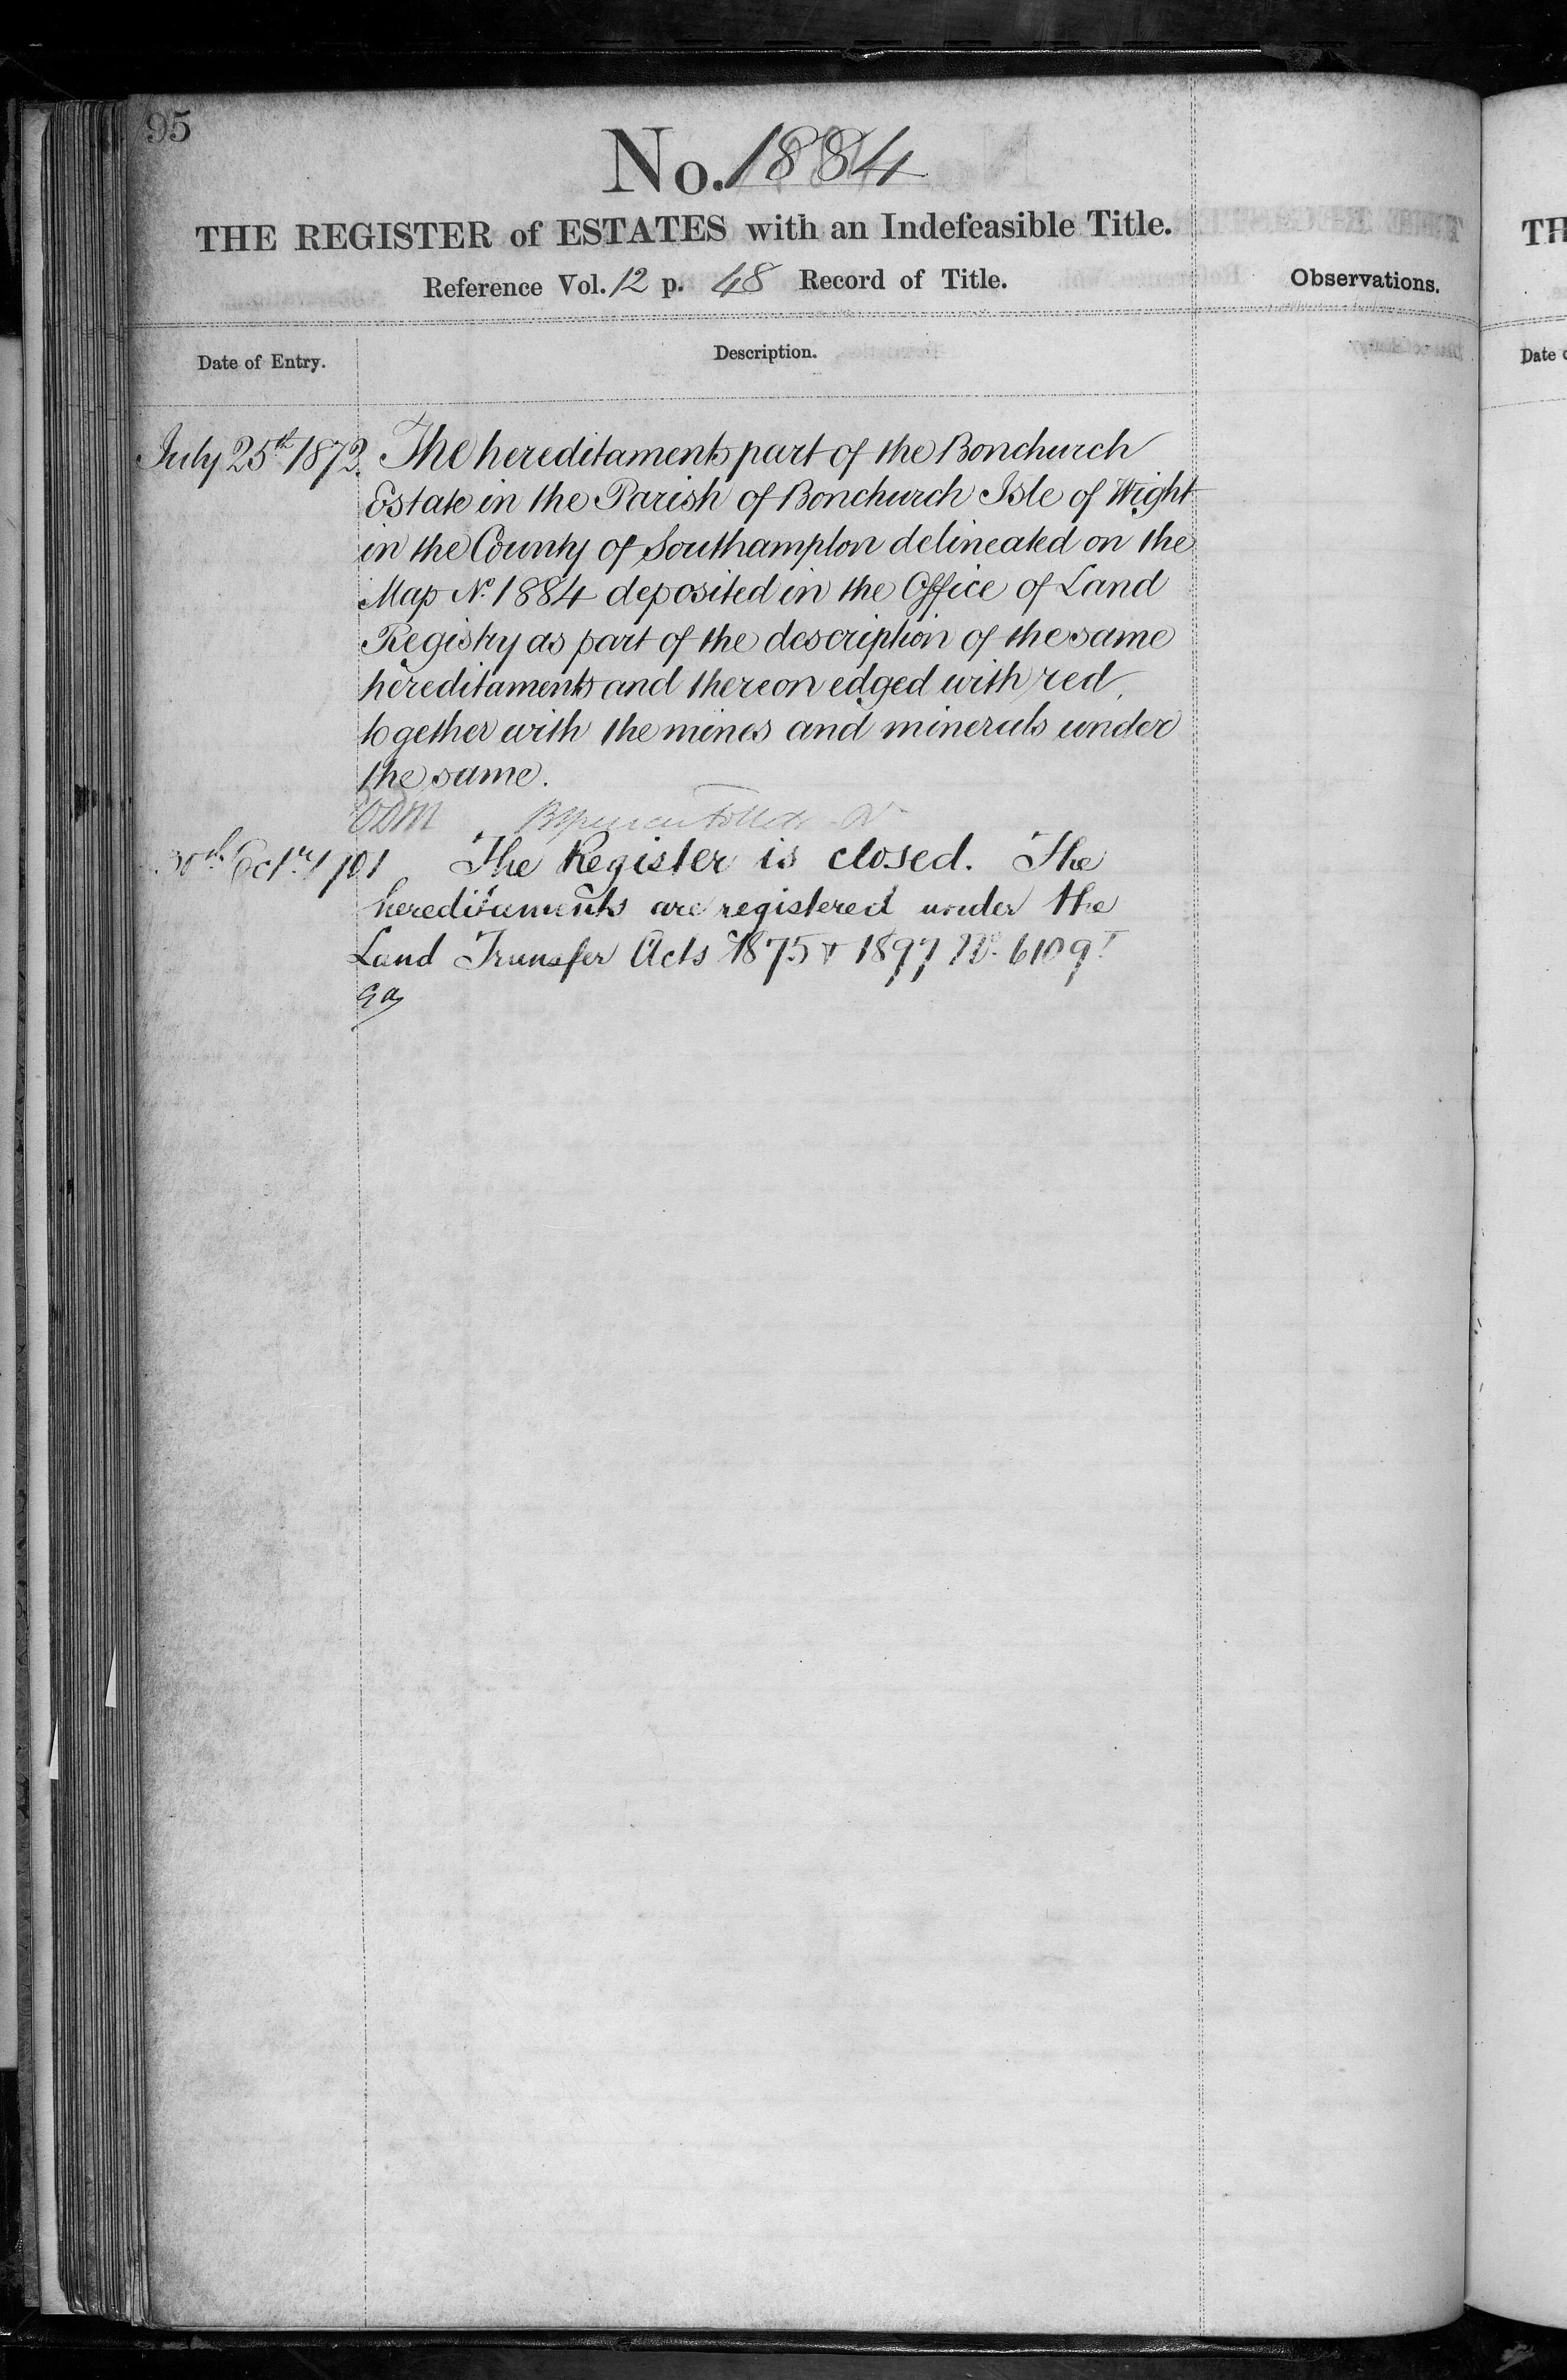 95
No. 1884
THE REGISTER of ESTATES with an Indefeasible Title.
Reference Vol. 12 p. 48 Record of Title.
Observations.
Date of Entry.
Description.
July 25th 1872. The hereditaments part of the Bonchurch
Estate in the Parish of Bonchurch Isle of Wight
in the County of Southampton delineated on the
Map No. 1884 deposited in the Office of Land
Registry as part of the description of the same
hereditaments and thereon edged with red,
together with the mines and minerals under
the same.
30th Octr. 1901 The Register is closed. The
hereditaments are registered under the
Land Transfer Acts 1875 & 1897 No. 6109
TH
Date